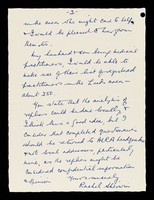 - 3 -
make areas she might care to help
& would be pleased to hear from
them etc.
My husband & son being medical
practitioners, I would be able to
make use of their list of registered
practitioners in the Leeds area -
about 250.
You state that the analysis of
replies could be done locally. I
think this is a good idea, but I
consider that completed questionnaires
should be returned to MRA headquarters
not local addresses particularly
mine, as the replies might be
considered confidential information
&
Yours sincerely
Rachel